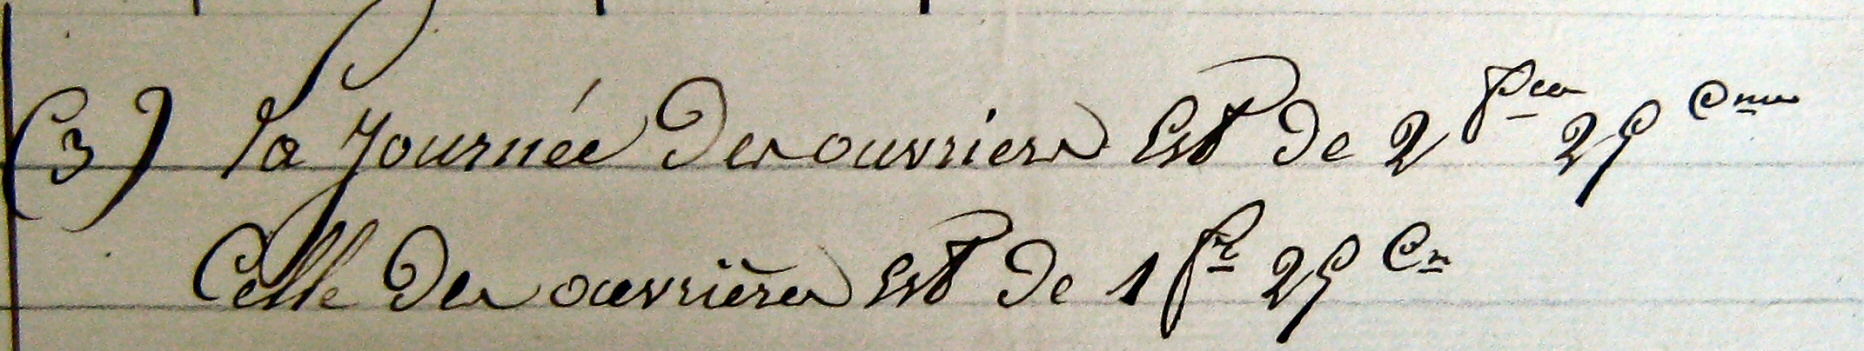 (3) la journée des ouvriers est de 2 frcs 25 cmes
Celle des ouvrières est de 1 fr 25 cs